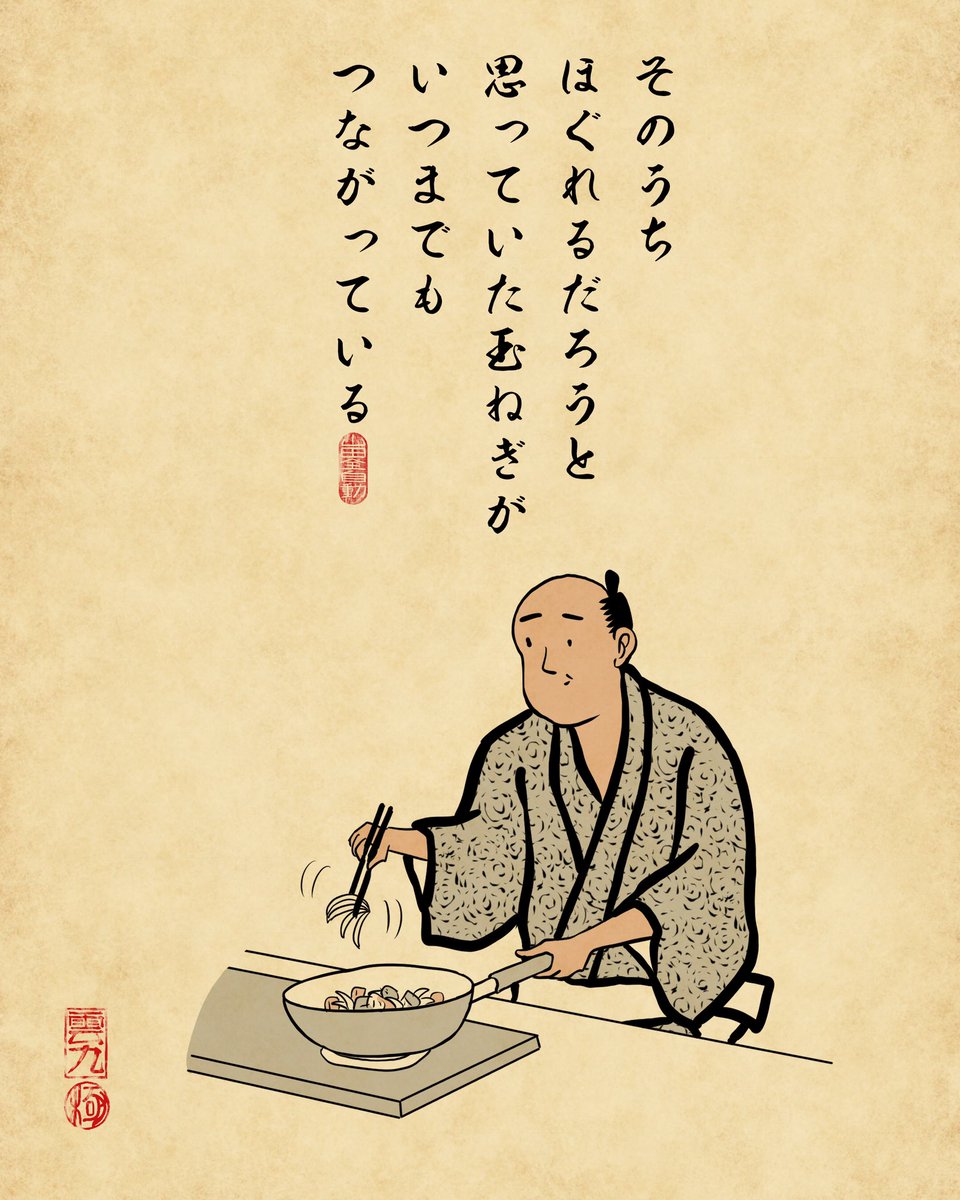 そのうち
ほぐれるだろうと
思っていた玉ねぎが
いつまでも
つながっている